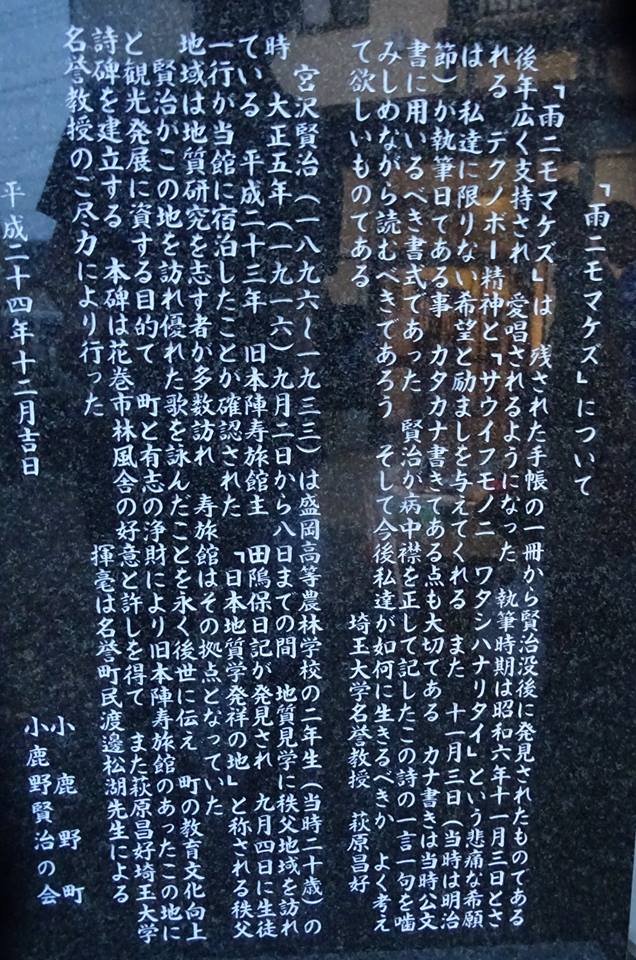 「雨ニモマケズ」について
「雨ニモマケズ」は 残された手帳の一冊から賢治没後に発見されたものである
後年広く支持され 愛唱されるようになった 執筆時期は昭和六年十一月三日とさ
れる テクノボー精神と「サウイフモノニ ワタシハナリタイ」という悲痛な希願
は 私達に限りない希望と励ましを与えてくれる また 十一月三日(当時は明治
節)が執筆日である事 カタカナ書きてある点も大切てある カナ書きは当時公文
書に用いるべき書式であった 賢治が病中襟を正して記したこの詩の一言一句を噛
みしめながら読むべきであろう そして今後私達が如何に生きるべきか よく考え
て欲しいものてある
埼玉大学名誉教授 萩原昌好
宮沢賢治(一八九六~一九三三)は盛岡高等農林学校の二年生(当時二十歳)の
時 大正五年(一九一六)九月二日から八日までの間 地質見学に秩父地域を訪れ
ている 平成二十三年 旧本陣寿旅館主 田隝保日記が発見され 九月四日に生徒
一行が当館に宿泊したことか確認された 「日本地質学発祥の地」と称される秩父
地域は地質研究を志す者が多数訪れ 寿旅館はその拠点となっていた
賢治がこの地を訪れ優れた歌を詠んだことを永く後世に伝え 町の教育文化向上
と観光発展に資する目的て 町と有志の浄財により旧本陣寿旅館のあったこの地に
詩碑を建立する 本碑は花巻市林風舎の好意と許しを得て また萩原昌好埼玉大学
名誉教授のご尽力により行った 揮毫は名誉町民渡邊松湖先生による
平成二十四年十二月吉日
小鹿野町
小鹿野賢治の会